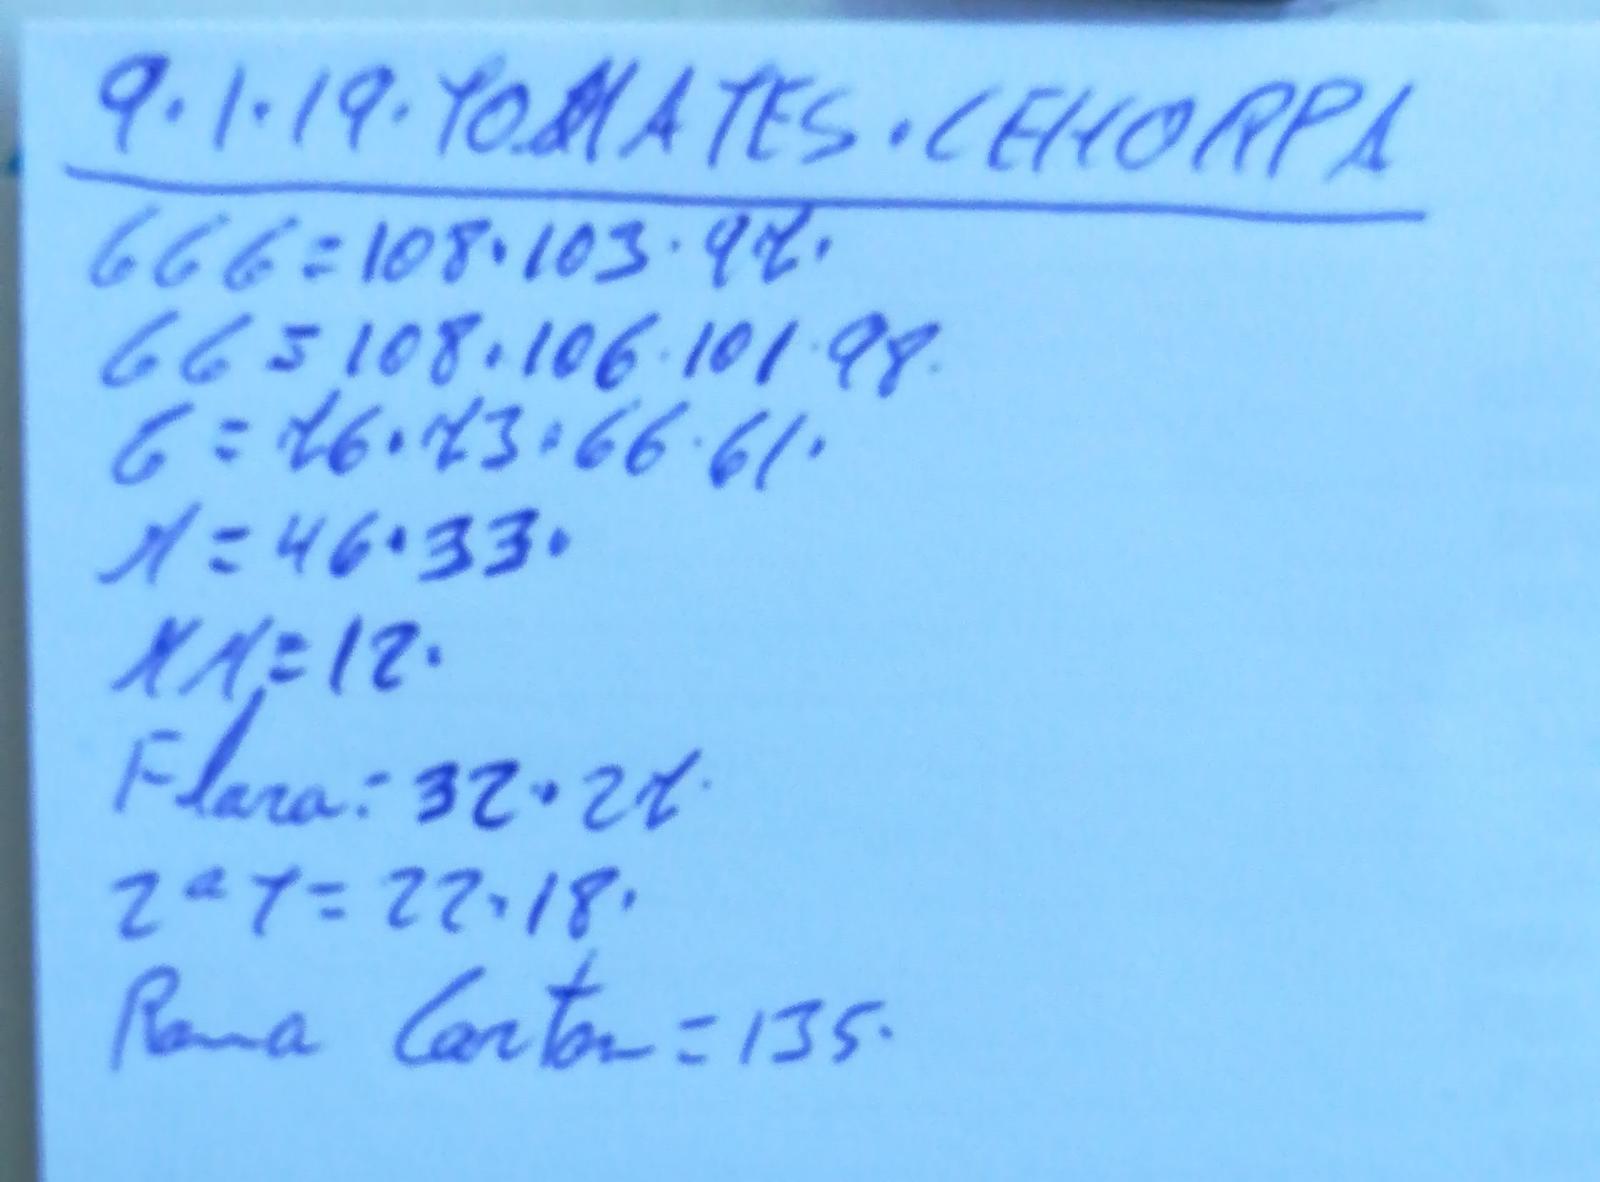 9.1.19. TOMATES. CEHORPA
GGG = 108. 103. 97.
GG = 108. 106. 101. 98.
G = 76. 73. 66. 61.
M = 46. 33.
MM = 12.
Flara = 32. 27.
2ª T = 22. 18.
Rama Carton = 135.